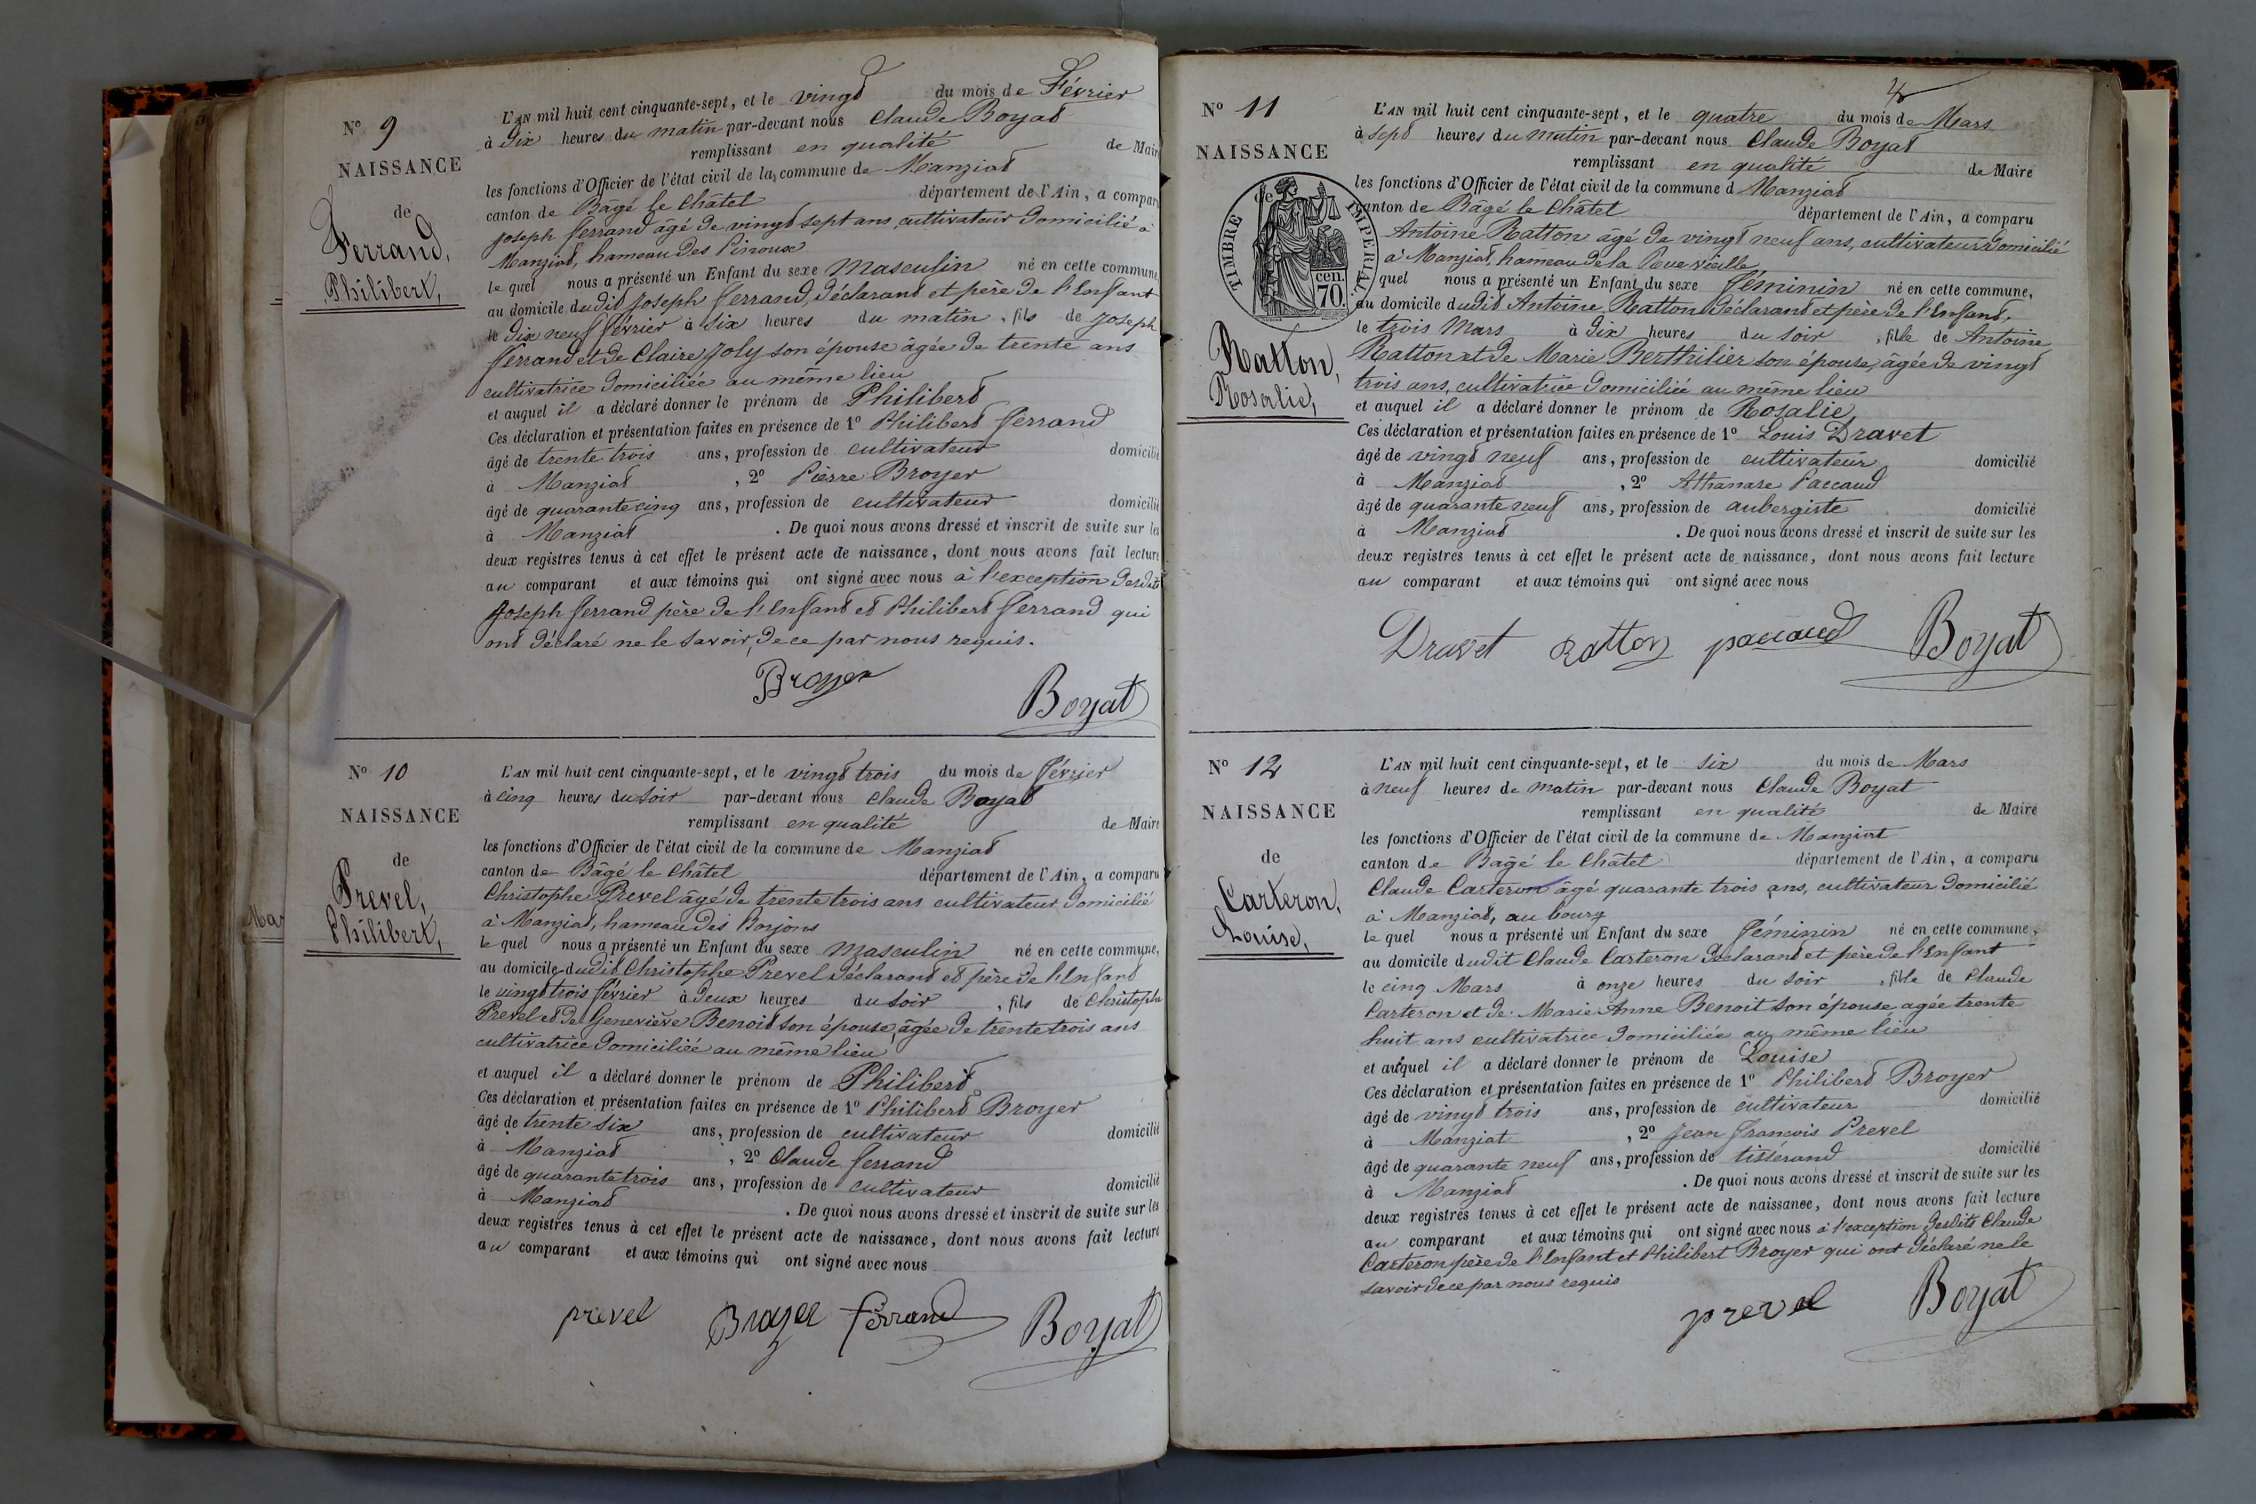 N° 9
NAISSANCE
de
Ferrand,
Philibert,
L'AN mil huit cent cinquante-sept, et le vingt du mois de Février
à Dix heures du matin par-devant nous Claude Boyat
remplissant en qualité de Maire
les fonctions d'Officier de l'état civil de la commune de Manziat
canton de Bâgé le Châtel département de l'Ain, a comparu
Joseph Ferrand âgé de vingt sept ans, cultivateur domicilié à
Manziat, hameau des Pinoux
le quel nous a présenté un Enfant du sexe Masculin né en cette commune,
au domicile dudit Joseph Ferrand, déclarant et père de l'Enfant
le dix neuf février à six heures du matin, fils de Joseph
Ferrand et de Claire Joly son épouse âgée de trente ans
cultivatrice domiciliée au même lieu
et auquel il a déclaré donner le prénom de Philibert
Ces déclaration et présentation faites en présence de 1° Philibert Ferrand
âgé de trente trois ans, profession de cultivateur domicilié
à Manziat, 2° Pierre Broyer
âgé de quarante cinq ans, profession de cultivateur domicilié
à Manziat. De quoi nous avons dressé et inscrit de suite sur les
deux registres tenus à cet effet le présent acte de naissance, dont nous avons fait lecture
au comparant et aux témoins qui ont signé avec nous à l'exception desdits
Joseph Ferrand père de l'Enfant et Philibert Ferrand qui
ont déclaré ne le savoir, de ce par nous requis.
Broyer
Boyat
N° 10
NAISSANCE
de
Prevel,
Philibert,
L'AN mil huit cent cinquante-sept, et le vingt trois du mois de février
à cinq heures du soir par-devant nous Claude Boyat
remplissant en qualité de Maire
les fonctions d'Officier de l'état civil de la commune de Manziat
canton de Bâgé le Châtel département de l'Ain, a comparu
Christophe Prevel âgé de trente trois ans cultivateur domicilié
à Manziat, hameau des Bonjons
le quel nous a présenté un Enfant du sexe masculin né en cette commune,
au domicile dudit Christophe Prevel déclarant et père de l'Enfant
le vingt trois février à deux heures du soir, fils de Christophe
Prevel et de Geneviève Benoit son épouse, âgée de trente trois ans
cultivatrice domiciliée au même lieu
et auquel il a déclaré donner le prénom de Philibert
Ces déclaration et présentation faites en présence de 1° Philibert Broyer
âgé de trente six ans, profession de cultivateur domicilié
à Manziat, 2° Claude Ferrand
âgé de quarante trois ans, profession de cultivateur domicilié
à Manziat. De quoi nous avons dressé et inscrit de suite sur les
deux registres tenus à cet effet le présent acte de naissance, dont nous avons fait lecture
au comparant et aux témoins qui ont signé avec nous
prevel Broyer ferrand Boyat
N° 11
NAISSANCE
de
TIMBRE IMPERIAL
cen. 70.
Ratton,
Rosalie,
L'AN mil huit cent cinquante-sept, et le quatre du mois de Mars
à sept heures du matin par-devant nous Claude Boyat
remplissant en qualité de Maire
les fonctions d'Officier de l'état civil de la commune d Manziat
canton de Bâgé le Châtel département de l'Ain, a comparu
Antoine Ratton âgé de vingt neuf ans, cultivateur domicilié
à Manziat, hameau de la vieille
quel nous a présenté un Enfant du sexe féminin né en cette commune,
au domicile dudit Antoine Ratton déclarant et père de l'Enfant.
le trois Mars à dix heures du soir, fille de Antoine
Ratton et de Marie Berthilier son épouse, âgée de vingt
trois ans, cultivatrice domiciliée au même lieu
et auquel il a déclaré donner le prénom de Rosalie,
Ces déclaration et présentation faites en présence de 1° Louis Dravet
âgé de vingt neuf ans, profession de cultivateur domicilié
à Manziat, 2° Athanase Paccaud
âgé de quarante neuf ans, profession de aubergiste domicilié
à Manziat. De quoi nous avons dressé et inscrit de suite sur les
deux registres tenus à cet effet le présent acte de naissance, dont nous avons fait lecture
au comparant et aux témoins qui ont signé avec nous
Dravet Ratton paccaud Boyat
N° 12
NAISSANCE
de
Carteron,
Louise,
L'AN mil huit cent cinquante-sept, et le six du mois de Mars
à neuf heures de matin par-devant nous Claude Boyat
remplissant en qualité de Maire
les fonctions d'Officier de l'état civil de la commune de Manziat
canton de Bagé le Châtel département de l'Ain, a comparu
Claude Carteron âgé quarante trois ans, cultivateur domicilié
à Manziat, au bourg
le quel nous a présenté un Enfant du sexe féminin né en cette commune,
au domicile dudit Claude Carteron déclarant et père de l'Enfant
le cinq Mars à onze heures du soir, fille de Claude
Carteron et de Marie Anne Benoit son épouse agée trente
huit ans cultivatrice domiciliée au même lieu
et auquel il a déclaré donner le prénom de Louise
Ces déclaration et présentation faites en présence de 1° Philibert Broyer
âgé de vingt trois ans, profession de cultivateur domicilié
à Manziat, 2° Jean François Prevel
âgé de quarante neuf ans, profession de tisserand domicilié
à Manziat. De quoi nous avons dressé et inscrit de suite sur les
deux registres tenus à cet effet le présent acte de naissance, dont nous avons fait lecture
au comparant et aux témoins qui ont signé avec nous à l'exception desdits Claude
Carteron père de l'Enfant et Philibert Broyer qui ont déclaré ne le
savoir de ce par nous requis
prevel Boyat